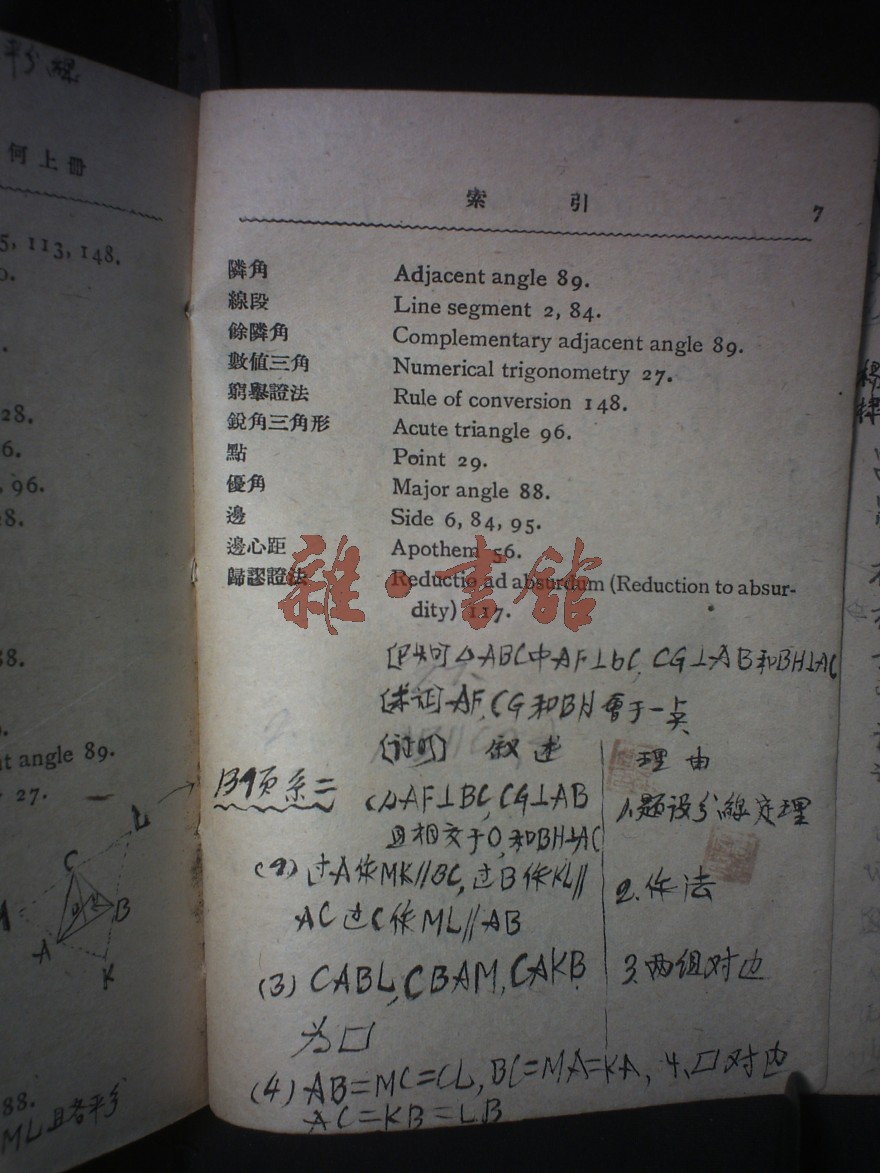 平分線
何上冊
5, 113, 148.
28.
6.
, 96.
88.
t angle 89.
27.
L
C
B
A
K
88.
ML且各平分
索 引 7
隣角 Adjacent angle 89.
線段 Line segment 2, 84.
餘隣角 Complementary adjacent angle 89.
數值三角 Numerical trigonometry 27.
窮舉證法 Rule of conversion 148.
銳角三角形 Acute triangle 96.
點 Point 29.
優角 Major angle 88.
邊 Side 6, 84, 95.
邊心距 Apothem 56.
歸謬證法 Reductio ad absurdum (Reduction to absur-
dity) 117.
雜·書館
[已知] △ABC中AF⊥bC, CG⊥AB和BH⊥AC
[求证] AF, CG和BH會于一点
[证明] 叙述 理由
139页系二
(1) AF⊥BC, CG⊥AB 1、题设分線定理
且相交于O, 和BH⊥AC
(2) 过A作MK//BC, 过B作KL// 2. 作法
AC 过C作ML//AB
(3) CABL, CBAM, CAKB 3. 两组对边
为▱
(4) AB=MC=CL, BC=MA=KA, 4、▱对边
AC=KB=LB